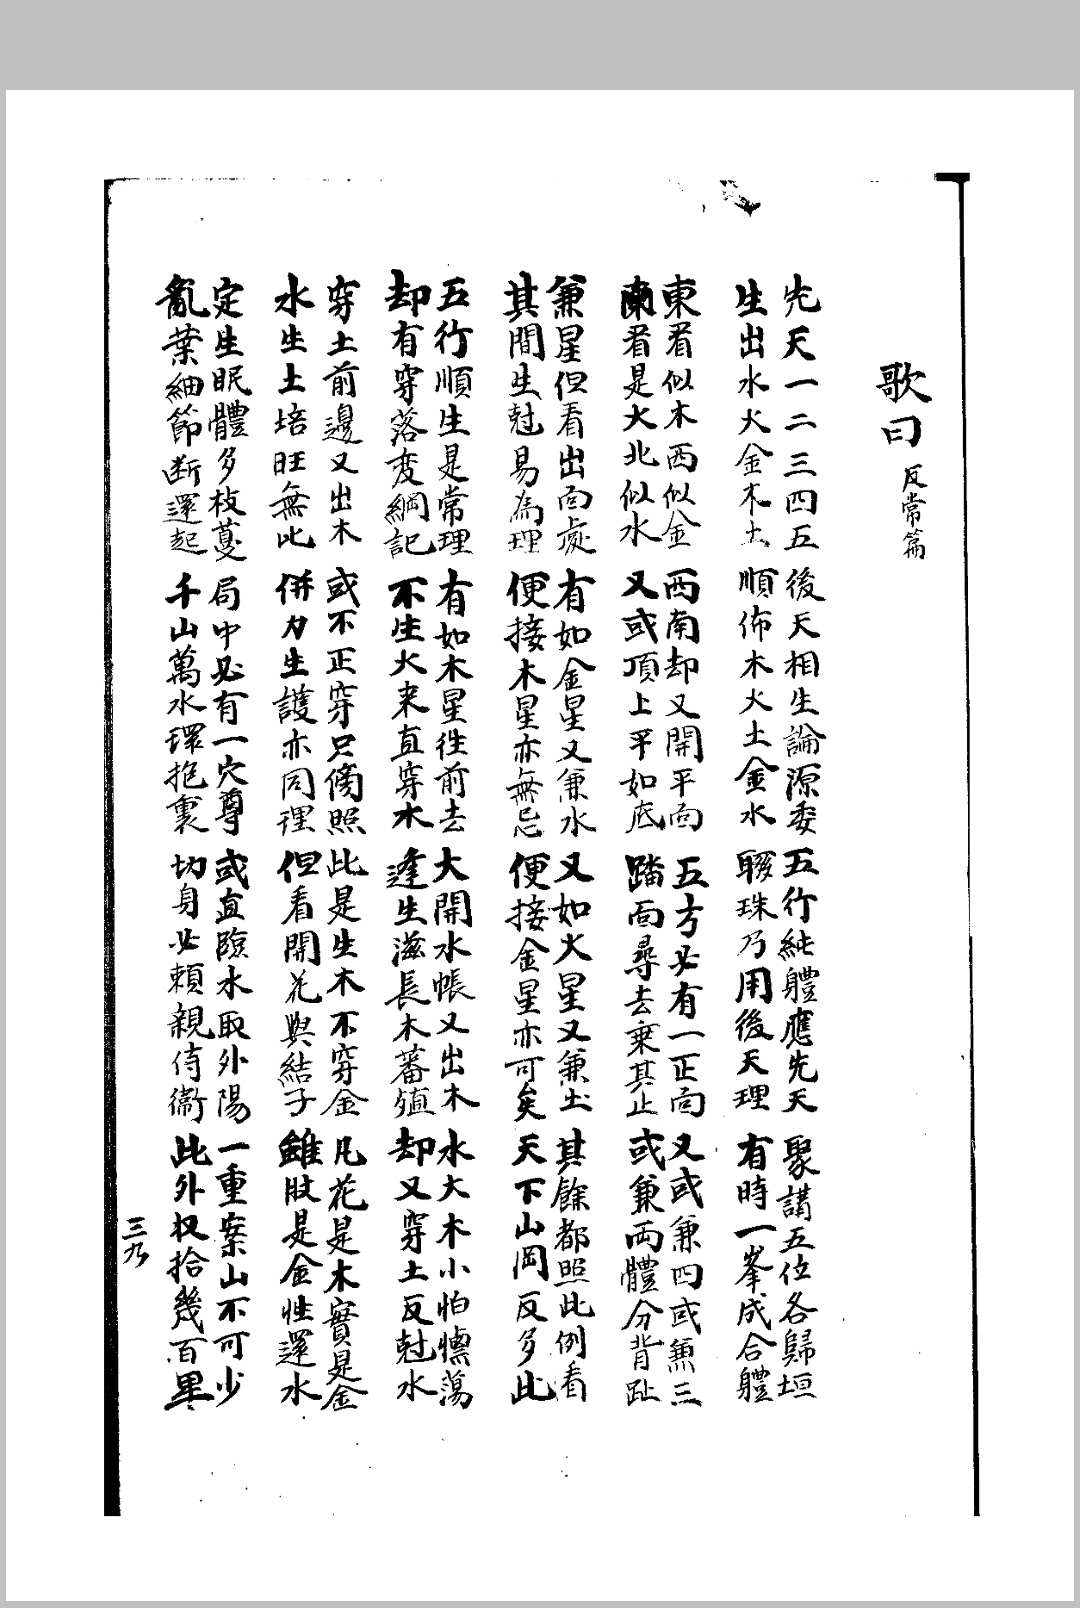 歌曰 反常篇
先天一二三四五
生出水火金木土
後天相生論源委
順佈木火土金水
五行純體應先天
聯珠乃用後天理
聚講五位各歸垣
有時一峯成合體
東看似木西似金
南看是火北似水
西南却又開平面
又或頂上平如底
五方必有一正面
踏面尋去乘其止
又或兼四或兼三
或兼兩體分背趾
兼星但看出面處
其間生尅易為理
有如金星又兼水
便接木星亦無忌
又如火星又兼土
便接金星亦可矣
其餘都照此例看
天下山岡反多此
五行順生是常理
却有穿落变綱記
有如木星徃前去
不生火来直穿水
大開水帳又出木
逢生滋長木蕃殖
水大木小怕蕩
却又穿土反尅水
穿土前邊又出木
水生土培旺無比
或不正穿只傍照
併力生護亦同理
此是生木不穿金
但看開花與結子
凡花是木實是金
雖是金性還水
定生眠體多枝蔓
亂葉細節断還起
局中必有一穴尊
千山萬水環抱裏
或直臨水取外陽
切身必賴親侍衛
一重案山不可少
此外收拾幾百里
三九